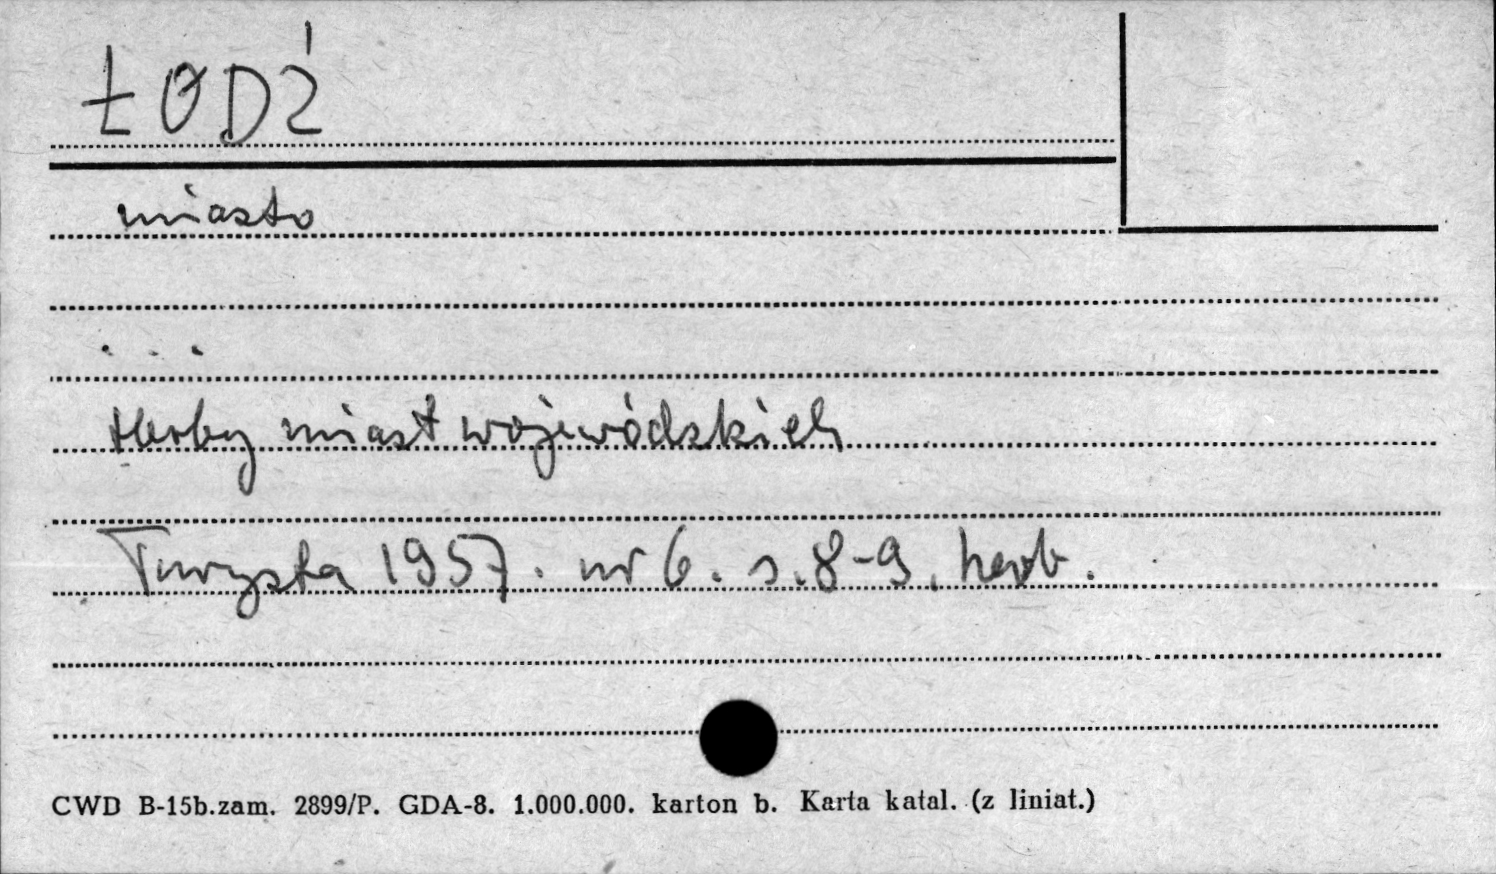 ŁÓDŹ
miasto
...
Herby miast wojewódzkich
Turysta 1957. nr 6. s. 8-9. herb.
CWD B-15b.zam. 2899/P. GDA-8. 1.000.000. karton b. Karta katal. (z liniat.)